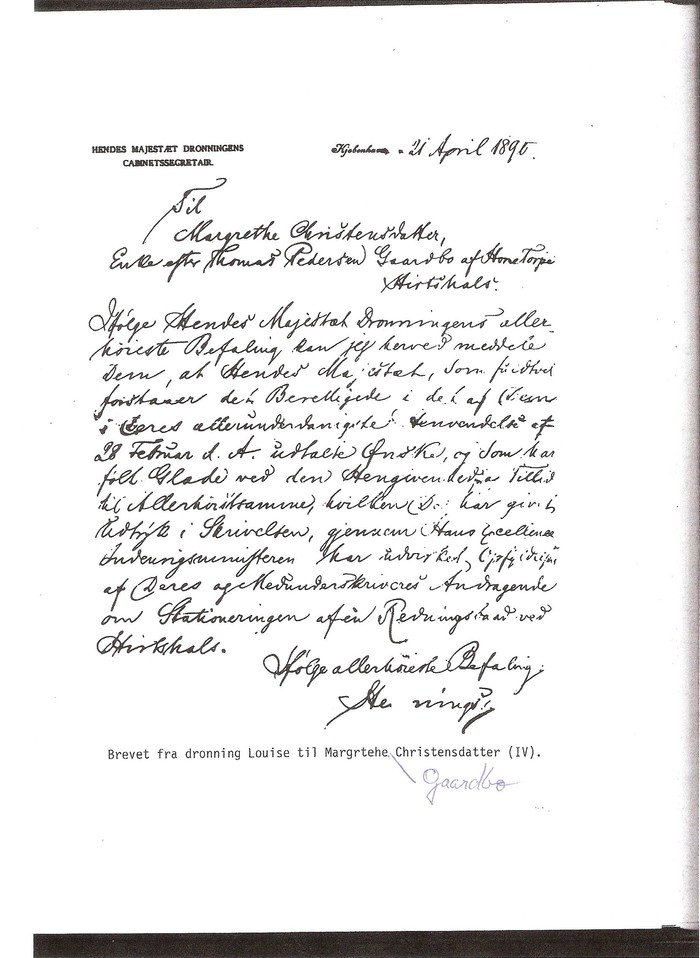 HENDES MAJESTÆT DRONNINGENS
CABINETSSECRETAIR.
Kjøbenhavn - 21 April 1890.
Til
Margrethe Christensdatter,
Enke efter Thomas Pedersen Gaardbo af HorneTorpe
Hirtshals.
Ifølge Hendes Majestæt Dronningens aller-
høieste Befaling kan jeg herved meddele
Dem, at Hendes Majestæt, som fuldtvel
forstaaer det Berettigede i det af Dem
i Deres allerunderdanigste Henvendelse af
28 Februar d. A. udtalte Ønske, og som har
følt Glæde ved den Hengivenhed og Tillid
til Allerhøistsamme, hvilken De har givet
Udtryk i Skrivelsen, gjennem Hans Excellence
Indenrigsministeren har udvirket
af Deres og Medunderskriveres Andragende
om Stationeringen af en Redningsbaad ved
Hirtshals.
Ifølge allerhøieste Befaling.
Brevet fra dronning Louise til Margrtehe Christensdatter (IV).
Gaardbo